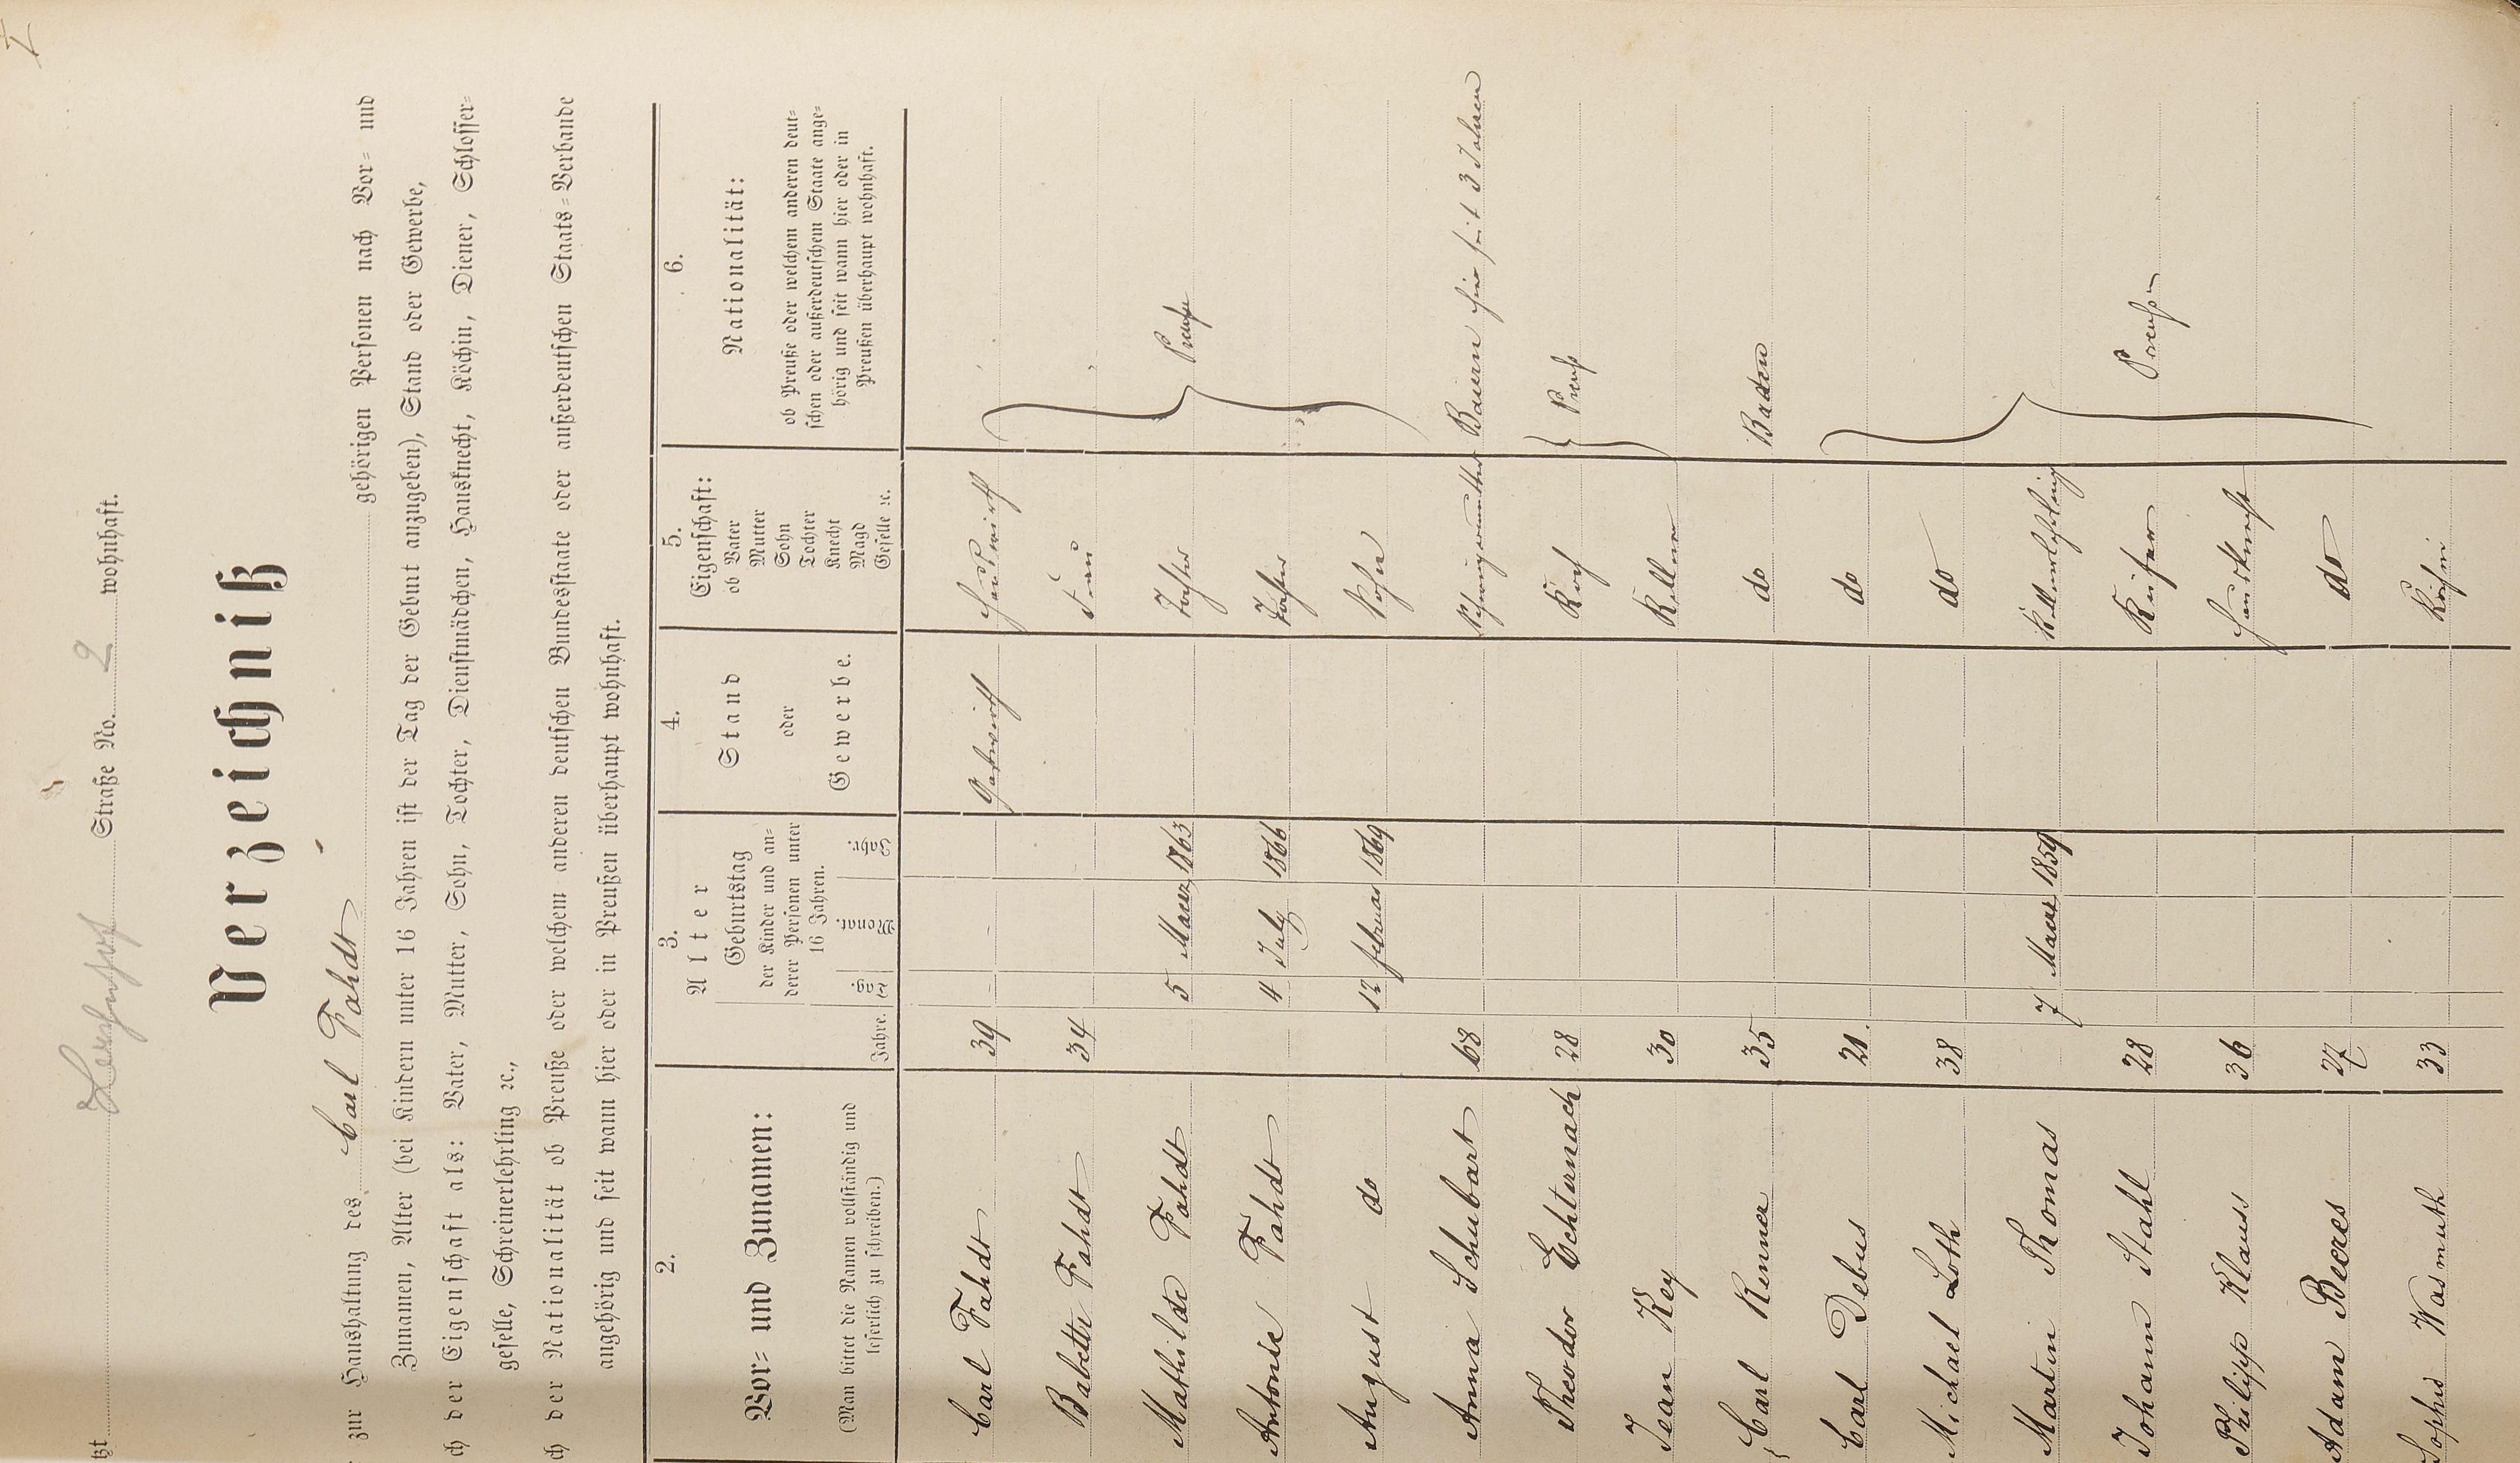 tzt Straße No. 2 wohnhaft.
Verzeichniß
zur Haushaltung des Carl Fahdt gehörigen Personen nach Vor= und
Zunamen, Alter (bei Kindern unter 16 Jahren ist der Tag der Geburt anzugeben), Stand oder Gewerbe,
ch der Eigenschaft als: Vater, Mutter, Sohn, Tochter, Dienstmädchen, Hausknecht, Köchin, Diener, Schlosser=
geselle, Schreinerlehrling ꝛc.,
ch der Nationalität ob Preuße oder welchem anderen deutschen Bundesstaate oder außerdeutschen Staats=Verbande
angehörig und seit wann hier oder in Preußen überhaupt wohnhaft.
2.
Vor= und Zunamen:
(Man bittet die Namen vollständig und
leserlich zu schreiben.)
3.
Alter
Geburtstag
der Kinder und an=
derer Personen unter
16 Jahren.
Jahre. Tag. Monat. Jahr.
4.
Stand
oder
Gewerbe.
5.
Eigenschaft:
ob Vater
Mutter
Sohn
Tochter
Knecht
Magd
Geselle ꝛc.
6.
Nationalität:
ob Preuße oder welchem anderen deut=
schen oder außerdeutschem Staate ange=
hörig und seit wann hier oder in
Preußen überhaupt wohnhaft.
Carl Fahdt 39 Gastwirth Hauswirth
Babette Fahdt 34 Frau
Mathilde Fahdt 5 Maerz 1863 Tochter Preuße
Antonie Fahdt 4 July 1866 Tochter
August do 12 februar 1869 Sohn
Anna Schubart 68 Schwiegermutter Baiern hier seit 3 Jahren
Theodor Echternach 28 Koch Preuß
Jean Key 30 Kellner
Carl Renner 35 do Baden
Carl Debus 21. do
Michael Loth 38 do
Martin Thomas 7 Maerz 1859 Kellnerlehrling
Johann Stahl 28 Küfer Preußen
Philipp Klauss 36 Hausknecht
Adam Beeres 27 do
Sophie Wasmuth 33 Köchin